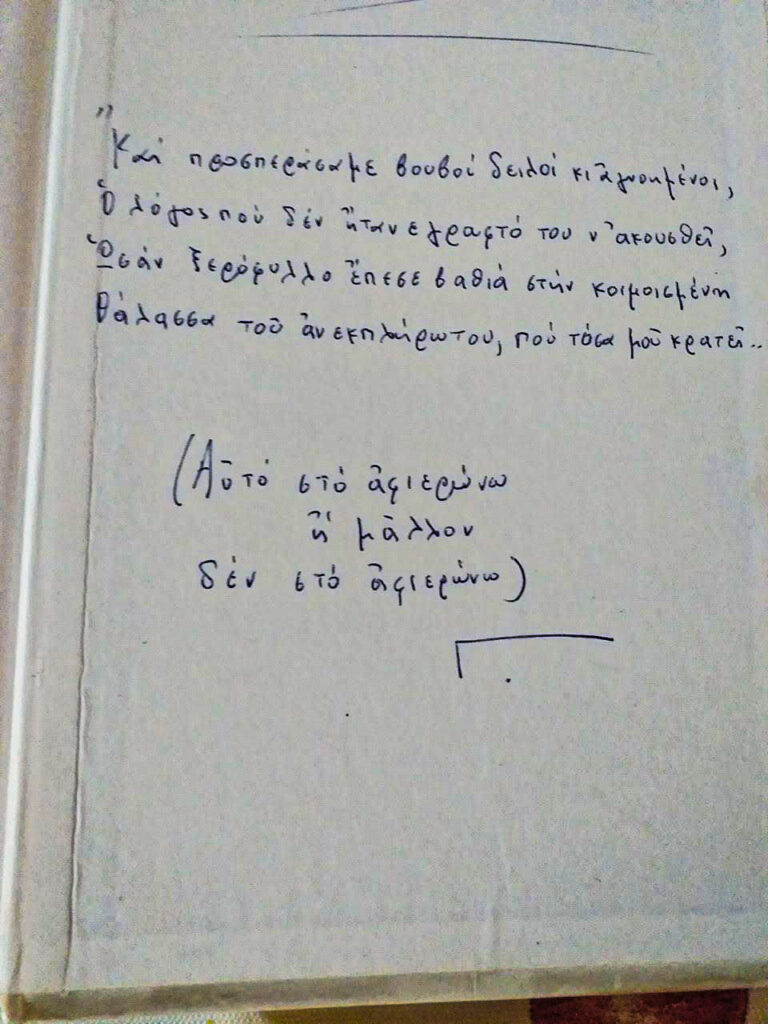 "
Καὶ προσπεράσαμε βουβοί δειλοί κι ἀγνοημένοι,
Ὁ λόγος πού δέν ἤτανε γραφτό του ν' ἀκουσθεῖ,
Ὡσάν ξερόφυλλο ἔπεσε βαθιά στήν κοιμοισμένη
θάλασσα τοῦ ἀνεκπλήρωτου, πού τόσα μοῦ κρατεῖ..
(Αὐτό στό ἀφιερώνω
ἤ μᾶλλον
δέν στό ἀφιερώνω)
Γ.